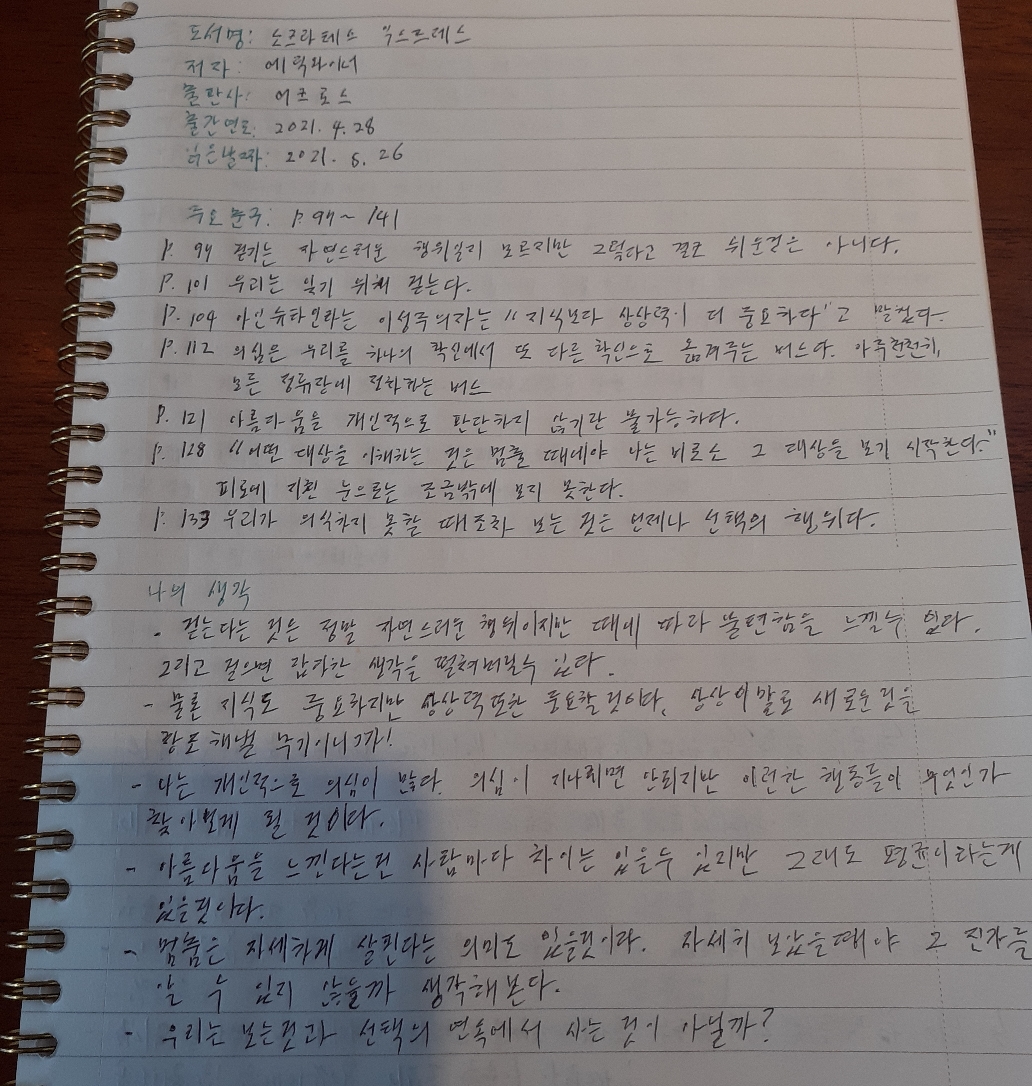 도서명: 소크라테스 익스프레스
저자: 에릭와이너
출판사: 어크로스
출간연도: 2021. 4. 28
읽은날짜: 2021. 5. 26
주요문구: P. 94~141
P. 94 걷기는 자연스러운 행위일지 모르지만 그렇다고 결코 쉬운것은 아니다.
P. 101 우리는 잊기 위해 걷는다.
P. 104 아인슈타인라는 이성주의자는 "지식보다 상상력이 더 중요하다"고 말했다.
P. 112 의심은 우리를 하나의 확신에서 또 다른 확신으로 옮겨주는 버스다. 아주천천히,
모든 정류장에 정차하는 버스
P. 121 아름다움을 개인적으로 판단하지 않기란 불가능하다.
P. 128 "어떤 대상을 이해하는 것은 멈출 때에야 나는 비로소 그 대상을 보기 시작한다."
피로에 지친 눈으로는 조금밖에 보지 못한다.
P. 133 우리가 의식하지 못할 때조차 보는 것은 언제나 선택의 행위다.
나의 생각
- 걷는다는 것은 정말 자연스러운 행위이지만 때에 따라 불편함을 느낄수 있다.
그리고 걸으면 갑갑한 생각을 떨쳐버릴수 있다.
- 물론 지식도 중요하지만 상상력또한 중요할것이다. 상상이말로 새로운것을
창조해낼 무기이니까!
- 나는 개인적으로 의심이 많다. 의심이 지나치면 안되지만 이러한 행동들이 무엇인가
찾아보게 될 것이다.
- 아름다움을 느낀다는건 사람마다 차이는 있을수 있지만 그래도 평균이라는게
있을것이다.
- 멈춤은 자세하게 살핀다는 의미도 있을것이다. 자세히 보았을때야 그 진가를
알 수 있지 않을까 생각해본다.
- 우리는 보는것과 선택의 연속에서 사는 것이 아닐까?